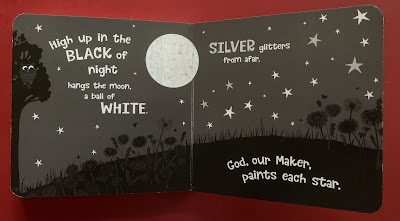 High up in the
BLACK of
night
hangs the moon,
a ball of
WHITE.
SILVER glitters
from afar.
God, our Maker,
paints each star.